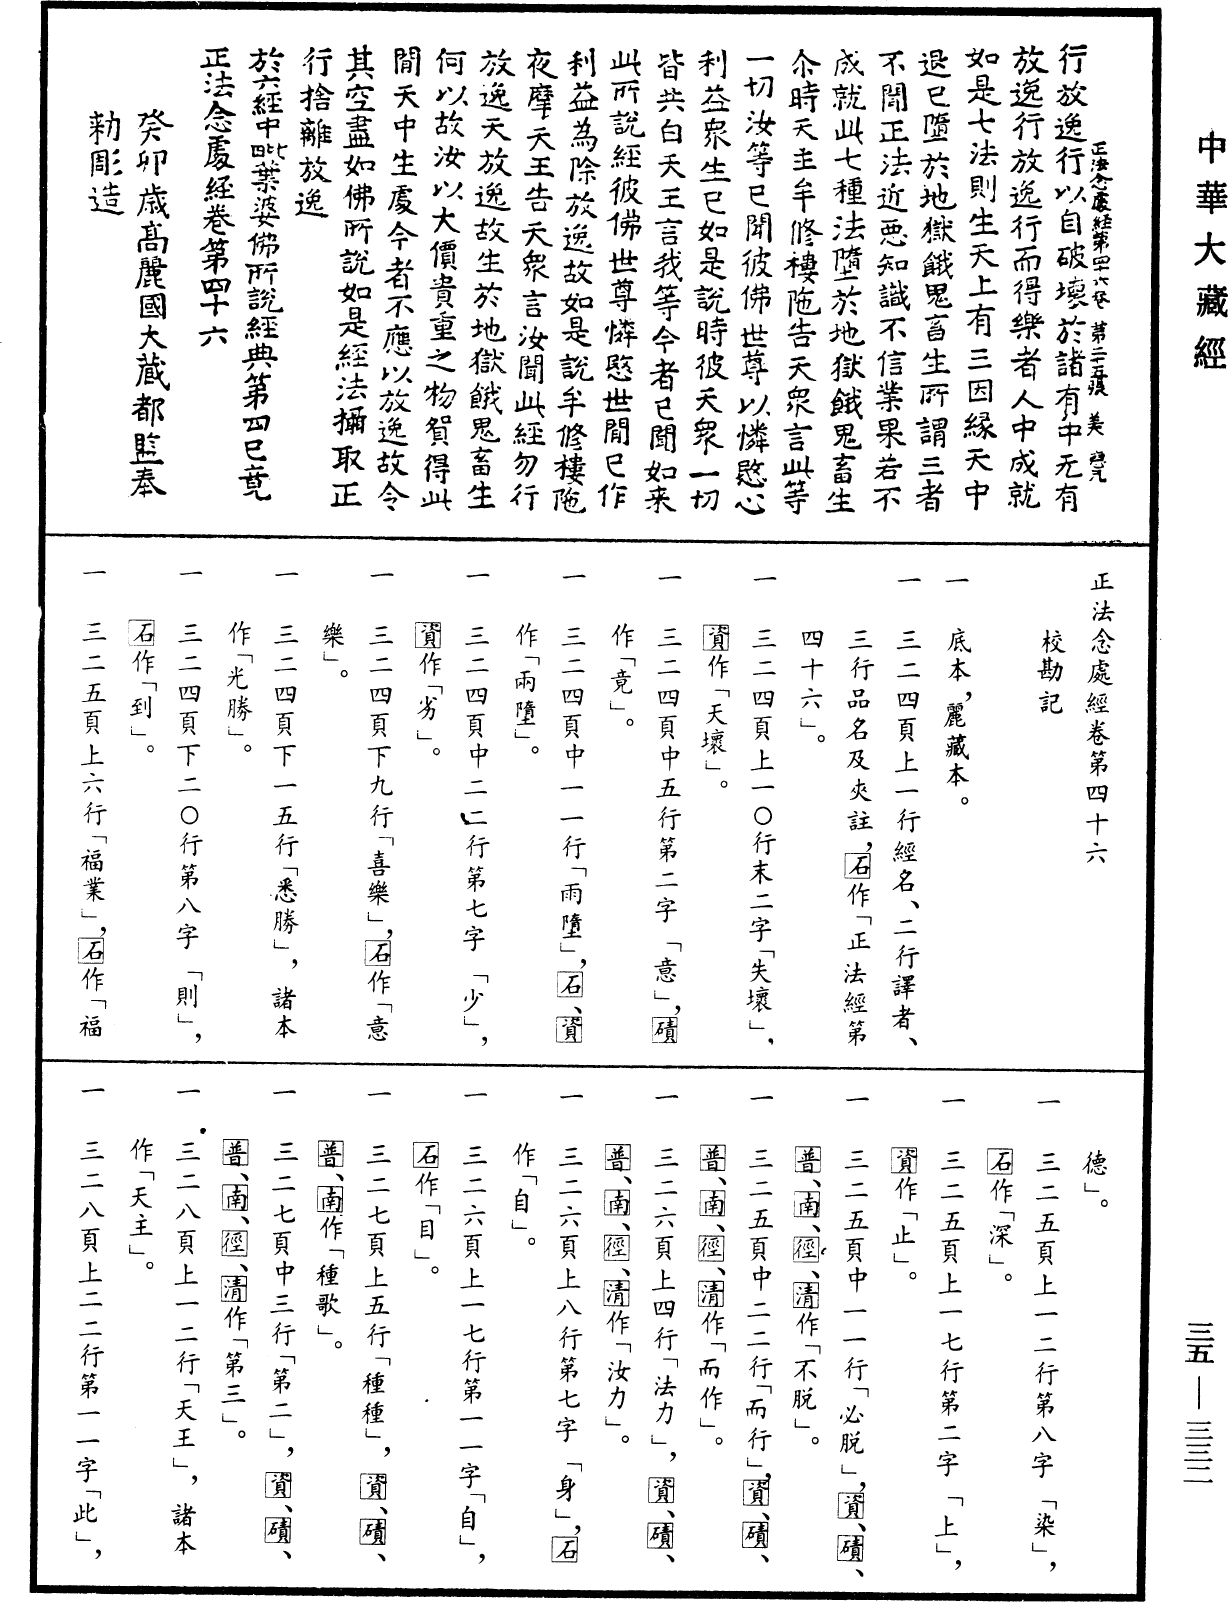 中華大藏經
行放逸行以自破壞於諸有中无有
正法念處經第四十六卷 第二十五張 美
放逸行放逸行而得樂者人中成就
如是七法則生天上有三因緣天中
退已墮於地獄餓鬼畜生所謂三者
不聞正法近惡知識不信業果若不
成就此七種法墮於地獄餓鬼畜生
尒時天主牟修樓陁告天衆言此等
一切汝等已聞彼佛世尊以憐愍心
利益衆生已如是說時彼天衆一切
皆共白天王言我等今者已聞如来
此所說經彼佛世尊憐愍世間已作
利益為除放逸故如是說牟修樓陁
夜摩天王告天衆言汝聞此經勿行
放逸天放逸故生於地獄餓鬼畜生
何以故汝以大價貴重之物貿得此
間天中生處今者不應以放逸故令
其空盡如佛所說如是經法攝取正
行捨離放逸
於六經中毗葉婆佛所說經典第四已竟
正法念處經卷第四十六
癸卯歲高麗國大藏都監奉
勅彫造
正法念處經卷第四十六
校勘記
一 底本,麗藏本。
一 三二四頁上一行經名、二行譯者、
三行品名及夾註,石作「正法經第
四十六」。
一 三二四頁上一〇行末二字「失壞」,
資作「天壞」。
一 三二四頁中五行第二字「意」,磧
作「竟」。
一 三二四頁中一一行「雨墮」,石、資
作「兩墮」。
一 三二四頁中二二行第七字「少」,
資作「劣」。
一 三二四頁下九行「喜樂」,石作「意
樂」。
一 三二四頁下一五行「悉勝」,諸本
作「光勝」。
一 三二四頁下二〇行第八字「則」,
石作「到」。
一 三二五頁上六行「福業」,石作「福
德」。
一 三二五頁上一二行第八字「染」,
石作「深」。
一 三二五頁上一七行第二字「上」,
資作「止」。
一 三二五頁中一一行「必脱」,資、磧、
普、南、徑、清作「不脱」。
一 三二五頁中二二行「而行」,資、磧、
普、南、徑、清作「而作」。
一 三二六頁上四行「法力」,資、磧、
普、南、徑、清作「汝力」。
一 三二六頁上八行第七字「身」,石
作「自」。
一 三二六頁上一七行第一一字「自」,
石作「目」。
一 三二七頁上五行「種種」,資、磧、
普、南作「種歌」。
一 三二七頁中三行「第二」,資、磧、
普、南、徑、清作「第三」。
一 三二八頁上一二行「天王」,諸本
作「天主」。
一 三二八頁上二二行第一一字「此」,
三五—三三二